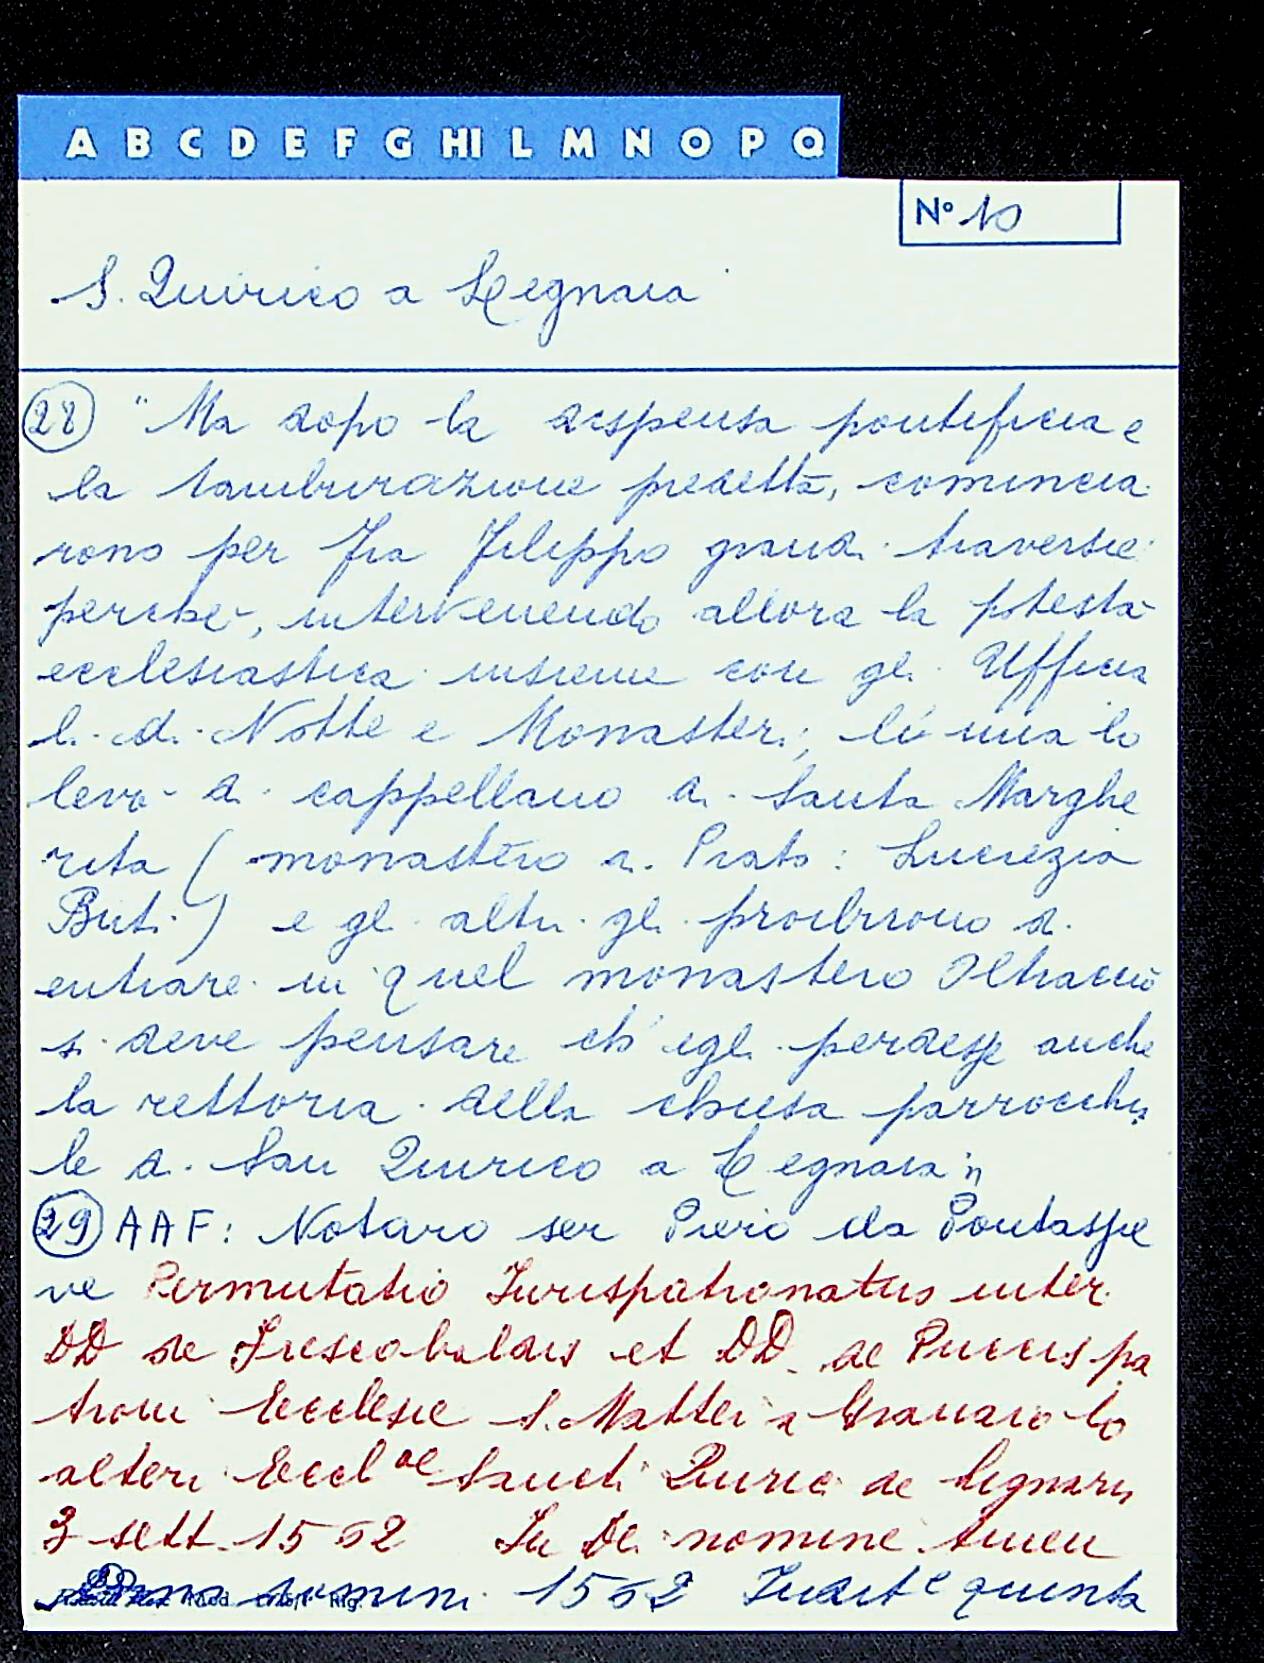 A B C D E F G HI L M N O P Q
N° 10
S. Quirico a Legnaia
28 "Ma dopo la dispensa pontificia e
la tamburazione predetta, comincia
rono per Fra Filippo grandi traversie
perché, intervenendo allora la potestà
ecclesiastica insieme con gli Uffici
li di Notte e Monasteri, l'una lo
levò di cappellano di Santa Marghe
rita (monastero di Prato: Lucrezia
Buti) e gli altri gli proibirono di
entrare in quel monastero Oltracciò
si deve pensare ch'egli perdesse anche
la rettoria della chiesa parrocchia
le di San Quirico a Legnaia"
29 AAF: Notaro ser Piero da Pontassie
ve Permutatio Jurispatronatus inter
DD de Frescobaldis et DD de Pucciis pa
troni Ecclesie S. Mattei a lo
alteri Eccl ae Sancti Quirici de Legnaria
3 sett. 1562 In Dei nomine Amen
1562 Indit e quinta